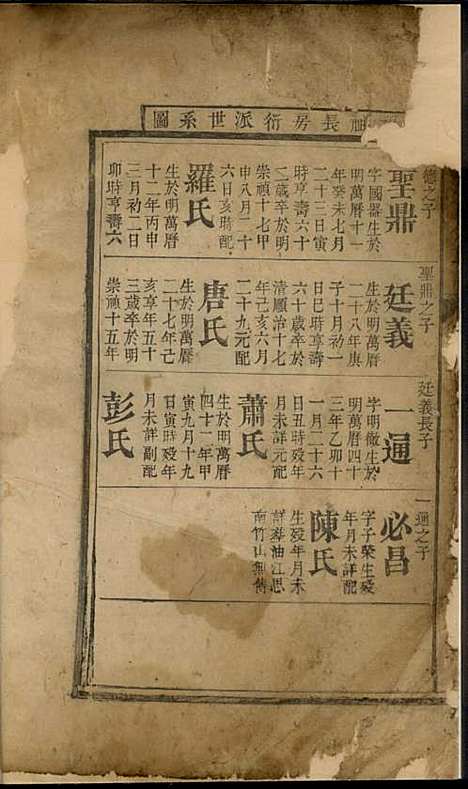 長房衍派世系圖
德之子
聖鼎
字國器生於
明萬曆十一
年癸未七月
二十三日寅
時享六十
二歲卒於明
崇禎十七甲
申八月二十
六日亥時配
羅氏
生於明萬曆
十二年丙申
三月初二日
卯時享壽六
聖鼎之子
廷義
生於明萬曆
二十八年庚
子十月初一
日巳時享壽
六十歲卒於
清順治十七
年己亥六月
二十九元配
唐氏
生於明萬曆
二十七年己
亥享年五十
三歲卒於明
崇禎十五年
廷義長子
一通
字明徹生於
明萬曆四十
三年乙卯十
一月二十六
日丑時歿年
月未詳元配
蕭氏
生於明萬曆
四十二年甲
寅九月十九
日寅時歿年
月未詳副配
彭氏
一通之子
必昌
字子榮生歿
年月未詳配
陳氏
生歿年月未
詳葬油江思
南竹山無傳